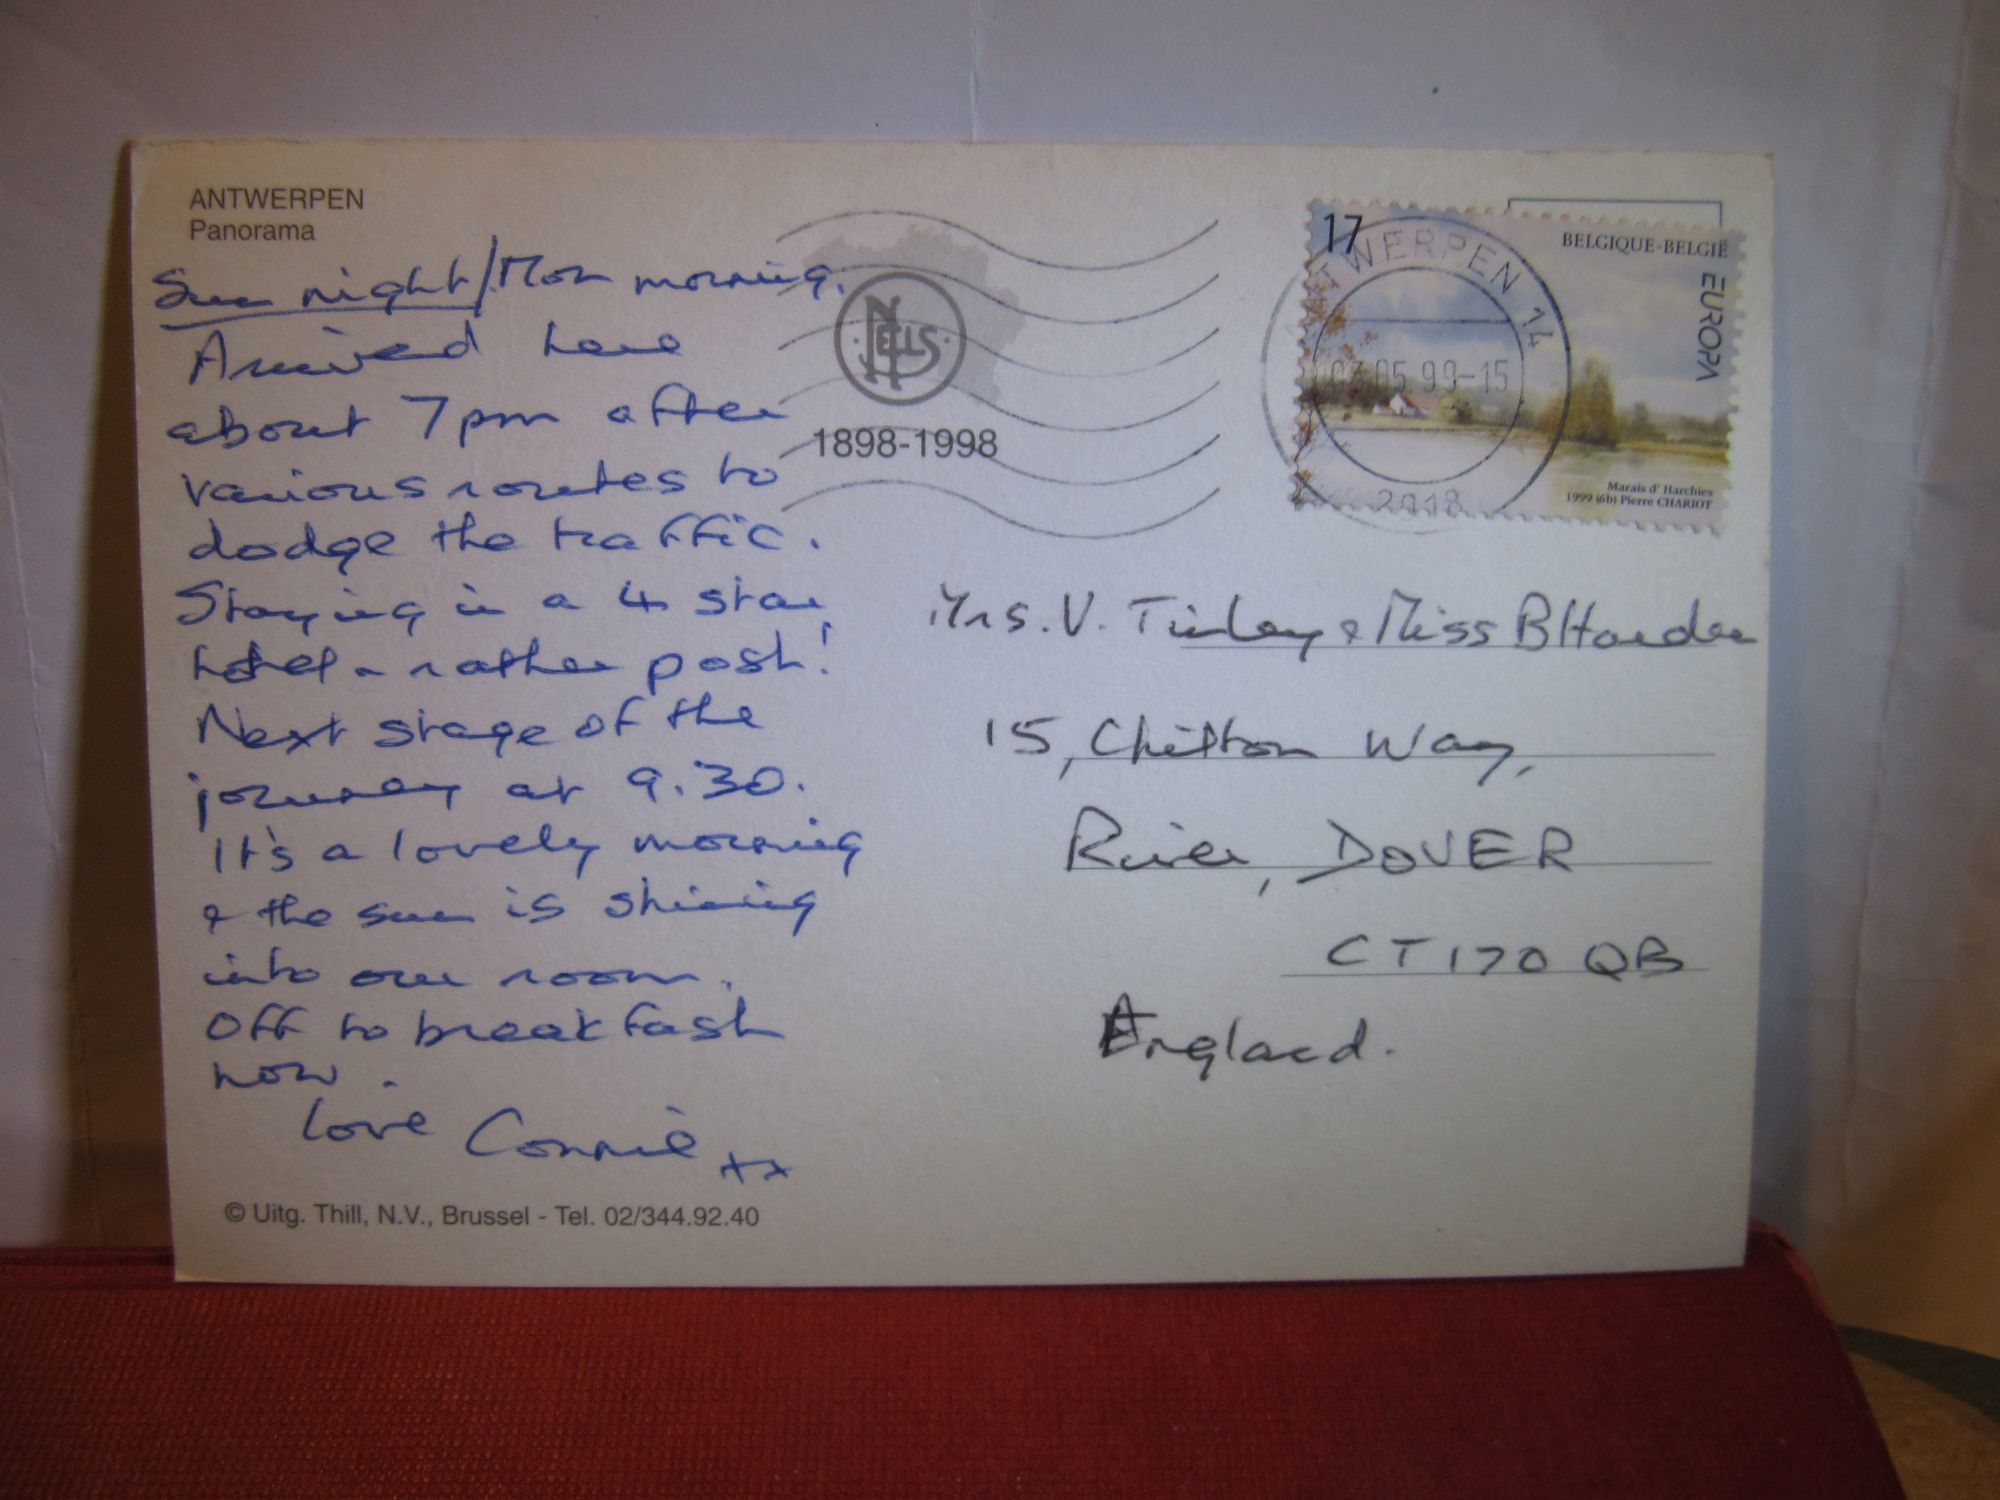 ANTWERPEN
Panorama
Sun night/Mon morning.
Arrived here
about 7pm after
various routes to
dodge the traffic.
Staying in a 4 star
hotel - rather posh!
Next stage of the
journey at 9.30.
It's a lovely morning
& the sun is shining
into our room.
Off to breakfast
now.
love Connie xx
© Uitg. Thill, N.V., Brussel - Tel. 02/344.92.40
NELLS
1898-1998
17
BELGIQUE-BELGIË
EUROPA
ANTWERPEN 14
03.05.99-15
2018
Marais d' Harchies
1999 (6b) Pierre CHARIOT
Mrs. V. Tinley & Miss B Harden
15, Chilton Way,
River, DOVER
CT170QB
England.